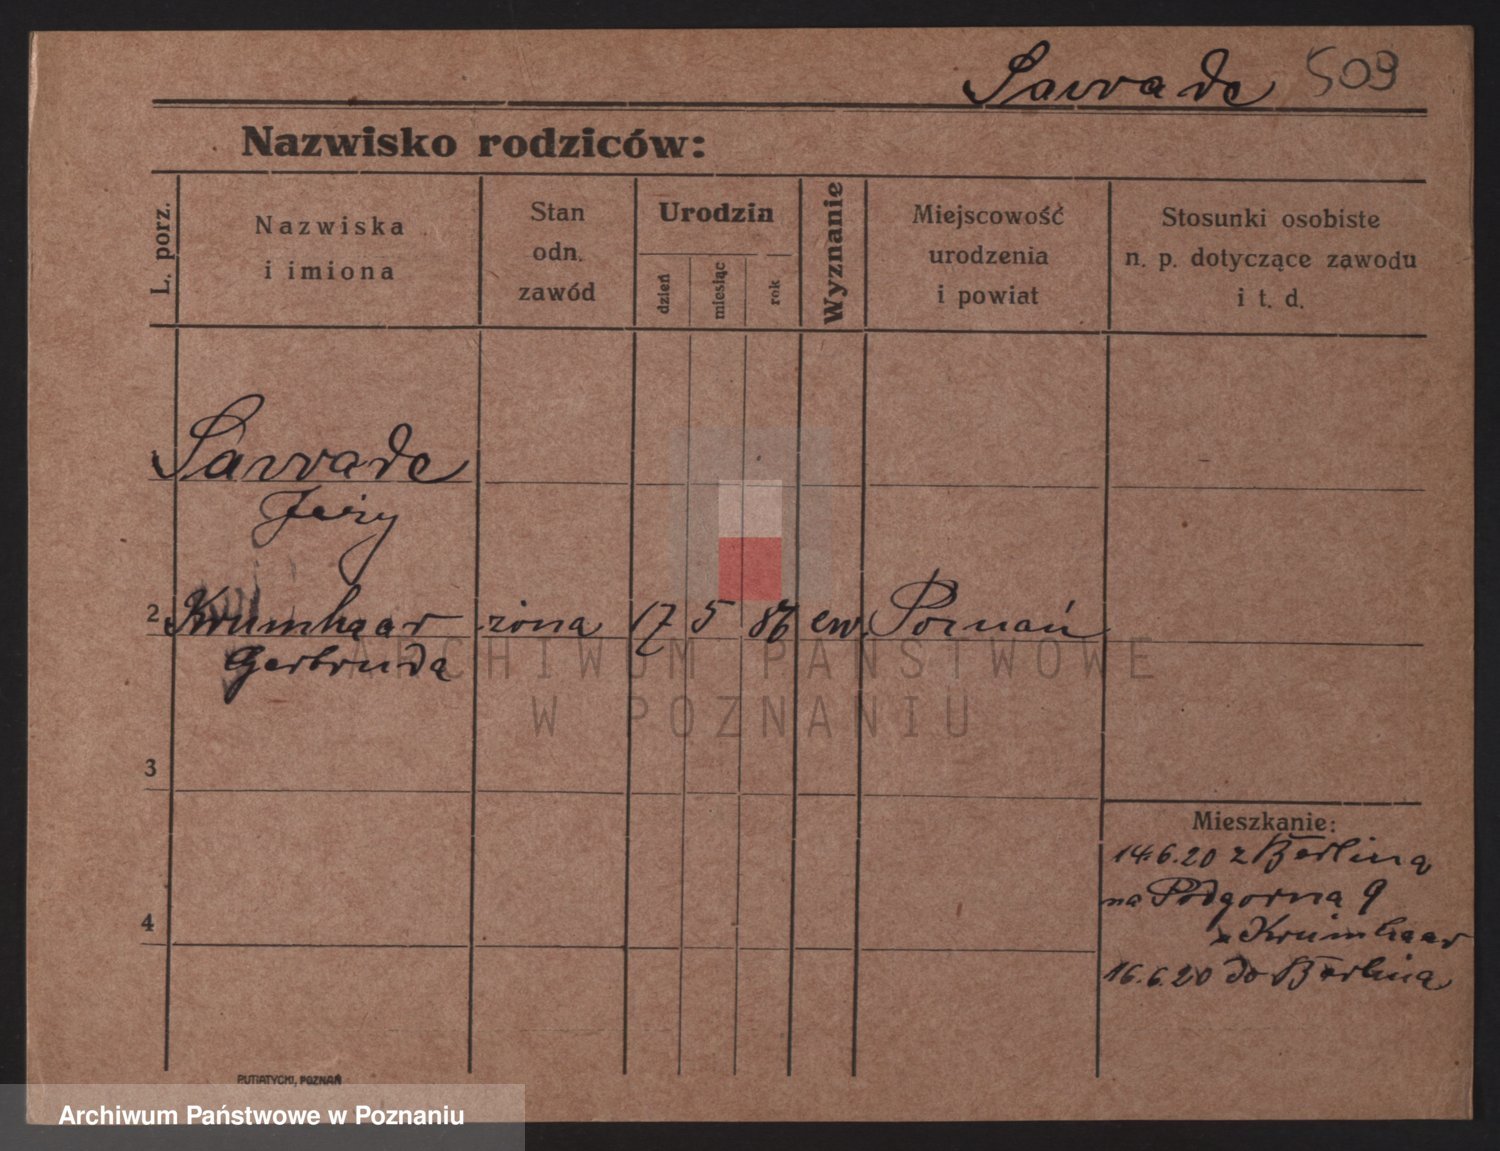 Sawade 509
Nazwisko rodziców:
L. porz.
Nazwiska
i imiona
Stan
odn.
zawód
Urodzin
dzień
miesiąc
rok
Wyznanie
Miejscowość
urodzenia
i powiat
Stosunki osobiste
n. p. dotyczące zawodu
i t. d.
Sawade
Jerzy
2 Krumhaar żona 17 5 86 ew. Poznań
Gertruda
3
4
Mieszkanie:
14.6.20 z Berlina
na Podgorna 9
Krumhaar
16.6.20 do Berlina
PUTIATYCKI, POZNAŃ
ARCHIWUM PAŃSTWOWE
W POZNANIU
Archiwum Państwowe w Poznaniu